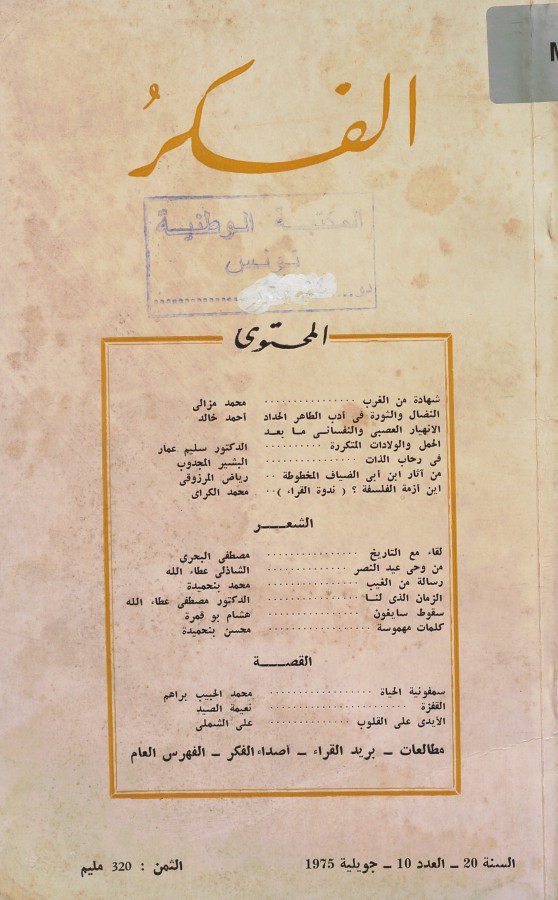 M
الفكرُ
المكتبة الوطنية
تونس
المحتوى
شهادة من الغرب ................ محمد مزالى
النضال والثورة فى أدب الطاهر الحداد أحمد خالد
الانهيار العصبى والنفسانى ما بعد
الحمل والولادات المتكررة .......... الدكتور سليم عمار
فى رحاب الذات ................ البشير المجدوب
من آثار ابن أبى الضياف المخطوطة .. رياض المرزوقى
اين أزمة الفلسفة ؟ ( ندوة القراء ) .. محمد الكراى
الشعــر
لقاء مع التاريخ ................ مصطفى البحرى
من وحى عيد النصر ............ الشاذلى عطاء الله
رسالة من الغيب .............. محمد بنحميدة
الزمان الذى لنا ................ الدكتور مصطفى عطاء الله
سقوط سايغون ................ هشام بو قمرة
كلمات مهموسة ................ محسن بنحميدة
القصــة
سمفونية الحياة ................ محمد الحبيب براهم
القفزة ........................ نعيمة الصيد
الأيدى على القلوب ............ على الشملى
مطالعات ـ بريد القراء ـ أصداء الفكر ـ الفهرس العام
السنة 20 ـ العدد 10 ـ جويلية 1975
الثمن : 320 مليم